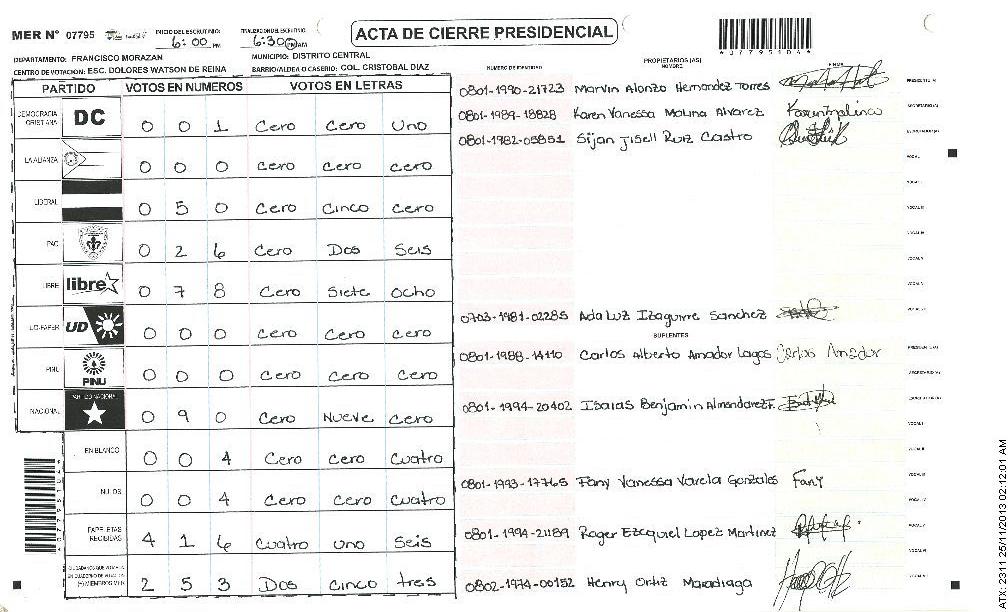 MER N° 07795 INICIO DEL ESCRUTINIO: 6:00 PM FINALIZACION DEL ESCRUTINIO: 6:30 PM AM
ACTA DE CIERRE PRESIDENCIAL
DEPARTAMENTO: FRANCISCO MORAZAN MUNICIPIO: DISTRITO CENTRAL
CENTRO DE VOTACION: ESC. DOLORES WATSON DE REINA BARRIO/ALDEA O CASERIO: COL. CRISTOBAL DIAZ
PARTIDO VOTOS EN NUMEROS VOTOS EN LETRAS
DEMOCRACIA CRISTIANA DC 0 0 1 Cero Cero Uno
LA ALIANZA 0 0 0 Cero Cero Cero
LIBERAL 0 5 0 Cero Cinco Cero
PAC 0 2 6 Cero Dos Seis
LIBRE libre 0 7 8 Cero Siete Ocho
UD-FAPER UD 0 0 0 Cero Cero Cero
PINU PINU 0 0 0 Cero Cero Cero
NACIONAL PARTIDO NACIONAL 0 9 0 Cero Nueve Cero
EN BLANCO 0 0 4 Cero Cero Cuatro
NULOS 0 0 4 Cero Cero Cuatro
PAPELETAS RECIBIDAS 4 1 6 Cuatro Uno Seis
2 5 3 Dos Cinco tres
NUMERO DE IDENTIDAD PROPIETARIOS (AS) NOMBRE FIRMA
0801-1990-21723 Marvin Alonzo Hernandez Torres PRESIDENTE (A)
0801-1989-18828 Karen Vanessa Molina Alvarez SECRETARIO (A)
0801-1982-05851 Sijan Jisell Ruiz Castro ESCRUTADOR (A)
0703-1981-02285 Ada Luz Izaguirre Sanchez
SUPLENTES
0801-1988-14110 Carlos Alberto Amador Lagos Carlos Amador
0801-1994-20402 Isaias Benjamin Almendarez F.
0801-1993-17765 Fany Vanessa Varela Gonzales Fany
0801-1994-21189 Roger Ezequiel Lopez Martinez
0802-1974-00152 Henry Ortiz Maradiaga
ATX: 23:11 25/11/2013 02:12:01 AM